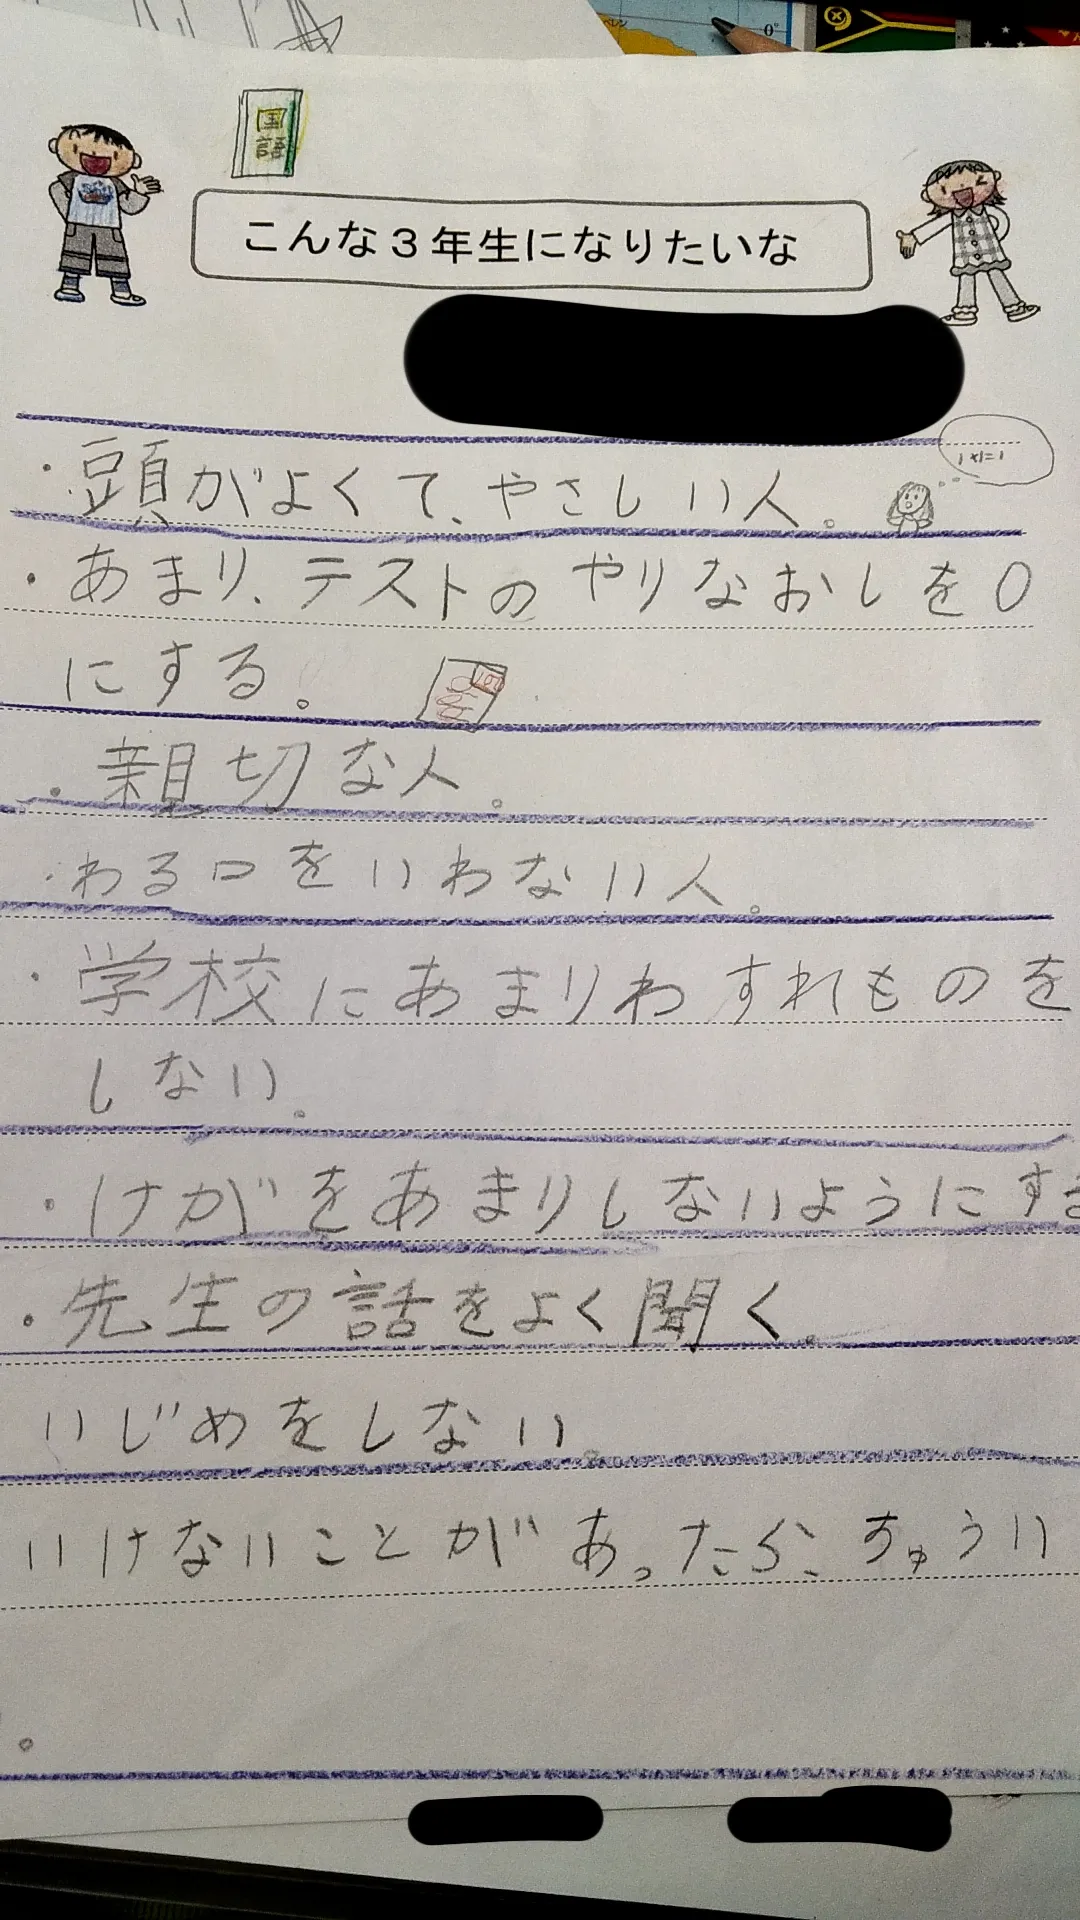 国語
こんな3年生になりたいな
1×1=1
・頭がよくて、やさしい人。
・あまり、テストのやりなおしを0
にする。
・親切な人。
・わる口をいわない人。
・学校にあまりわすれものを
しない。
・けがをあまりしないようにする
・先生の話をよく聞く。
いじめをしない。
いけないことがあったら、ちゅうい
。